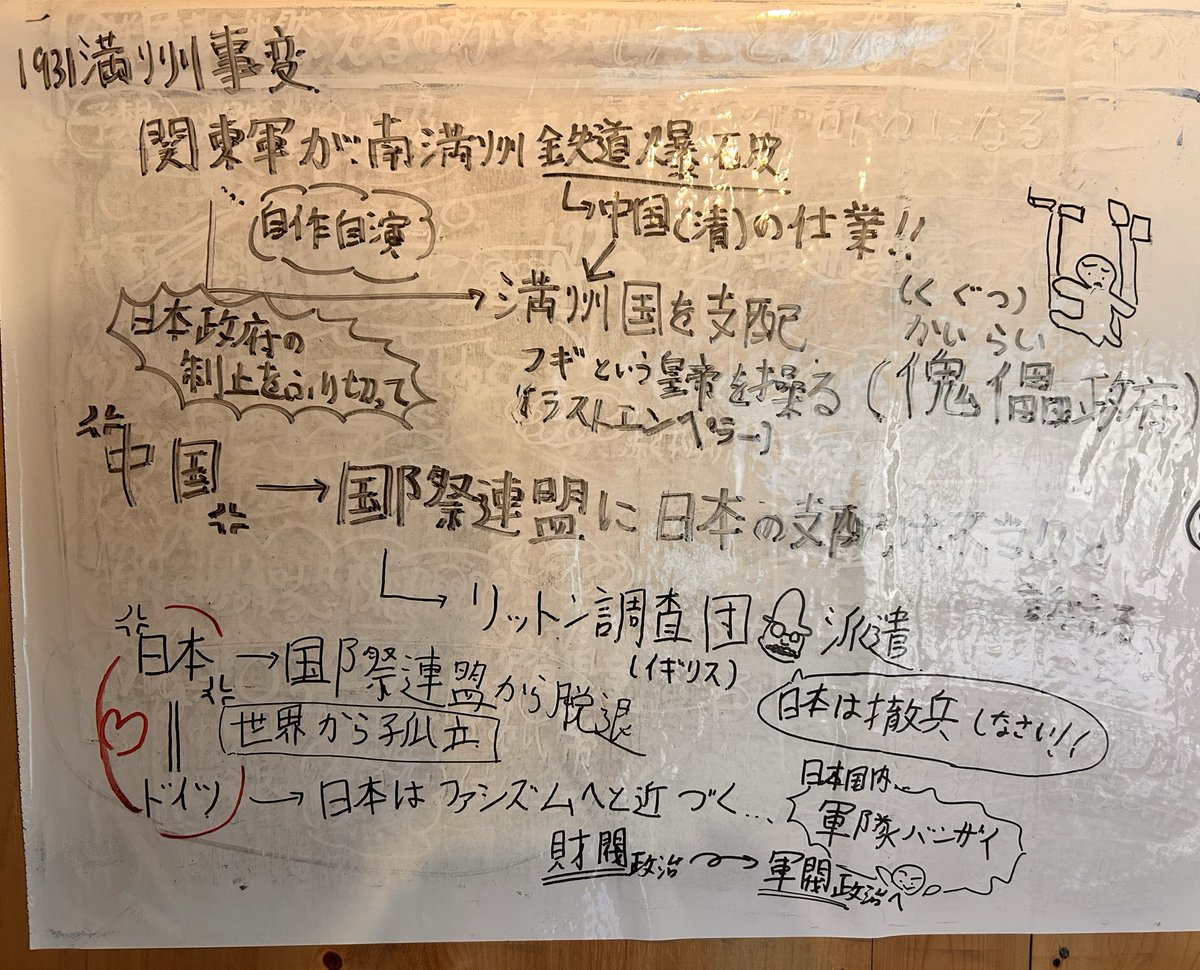 1931満州事変
関東軍が南満州鉄道爆破
自作自演
中国(清)の仕業!!
日本政府の
制止をふり切って
満州国を支配
フギという皇帝を操る
(ラストエンペラー)
(くぐつ)
かいらい
(傀儡政府)
中国→国際連盟に日本の支配は不当だと
リットン調査団 派遣
(イギリス)
日本は撤兵しなさい!!
日本→国際連盟から脱退
世界から孤立
ドイツ→日本はファシズムへと近づく...
日本国内
軍隊バンザイ
財閥政治 → 軍閥政治へ